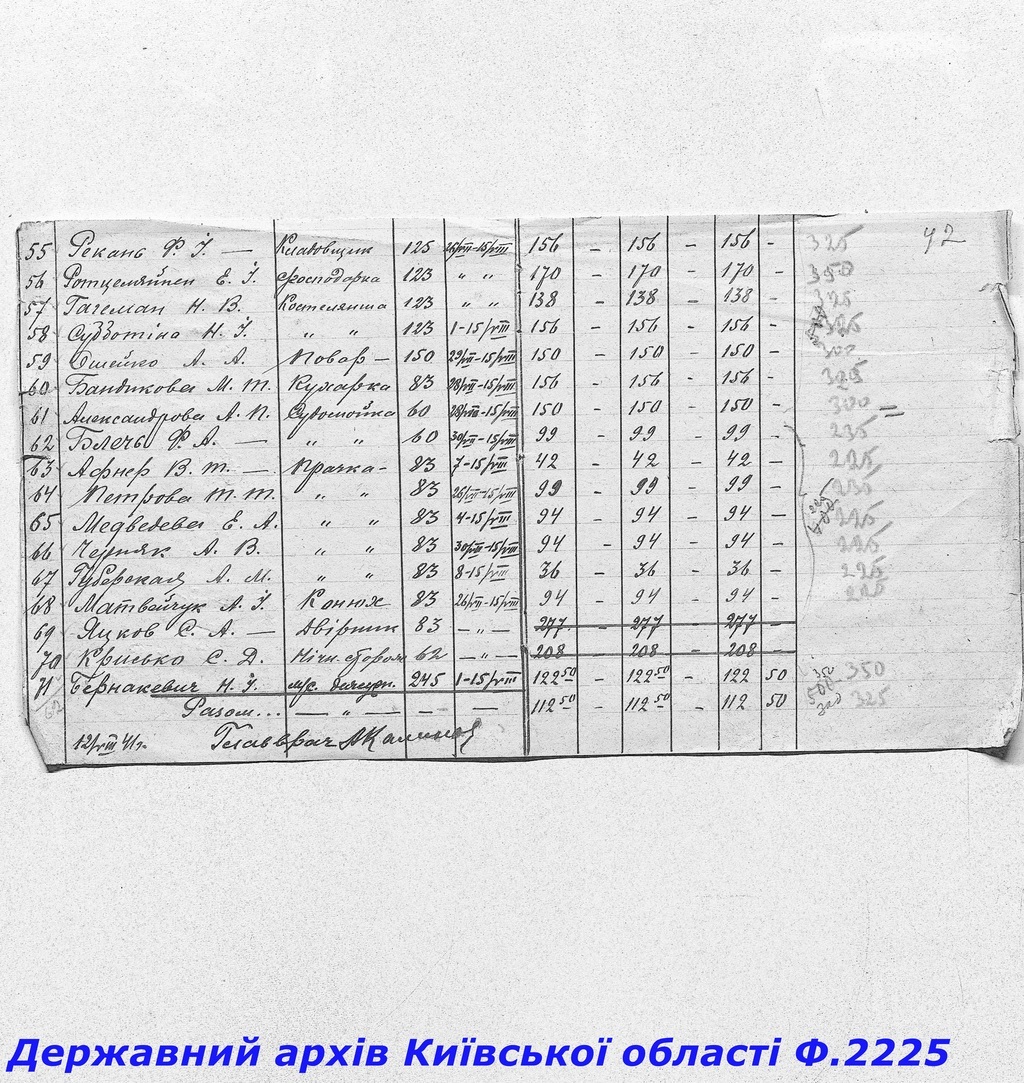 42
55 Рекань Ф. І. — Кладовщик 125 26/VII-15/VIII 156 - 156 - 156 - 325
56 Е. І. господарка 123 " " 170 - 170 - 170 - 350
57 Гагеман Н. В. Костелянша 123 " " 138 - 138 - 138 - 325
58 Субботіна Н. І. " " 123 1-15/VIII 156 - 156 - 156 - 325
59 А. А. Повар — 150 29/VII-15/VIII 150 - 150 - 150 - 300
60 Бандикова М. Т. Кухарка 83 28/VII-15/VIII 156 - 156 - 156 - 325
61 Александрова А. П. Судомойка 60 28/VII-15/VIII 150 - 150 - 150 - 300 =
62 Блечь Ф. А. — " " 60 30/VII-15/VIII 99 - 99 - 99 - 235
63 Афнер В. Т. — Прачка - 83 7-15/VIII 42 - 42 - 42 - 225
64 Петрова Т. Т. " " 83 26/VII-15/VIII 99 - 99 - 99 - 235
65 Медведева Е. А. " " 83 4-15/VIII 94 - 94 - 94 - 225
66 Черняк А. В. " " 83 30/VII-15/VIII 94 - 94 - 94 - 225
67 Губерская А. М. " " 83 8-15/VIII 36 - 36 - 36 - 225
68 Матвейчук А. І. Конюх 83 26/VII-15/VIII 94 - 94 - 94 -
69 Яцков С. А. — Двірник 83 — " — 277 - 277 - 277 -
70 Крисько С. Д. Нічн. сторож 62 — " — 208 - 208 - 208 -
71 Бернакевич Н. І. 245 1-15/VIII 122 50 - 122 50 - 122 50 350
Разом... — " — — — 112 50 - 112 50 - 112 50 325
12/VIII 41 г. Главврач
Державний архів Київської області Ф.2225